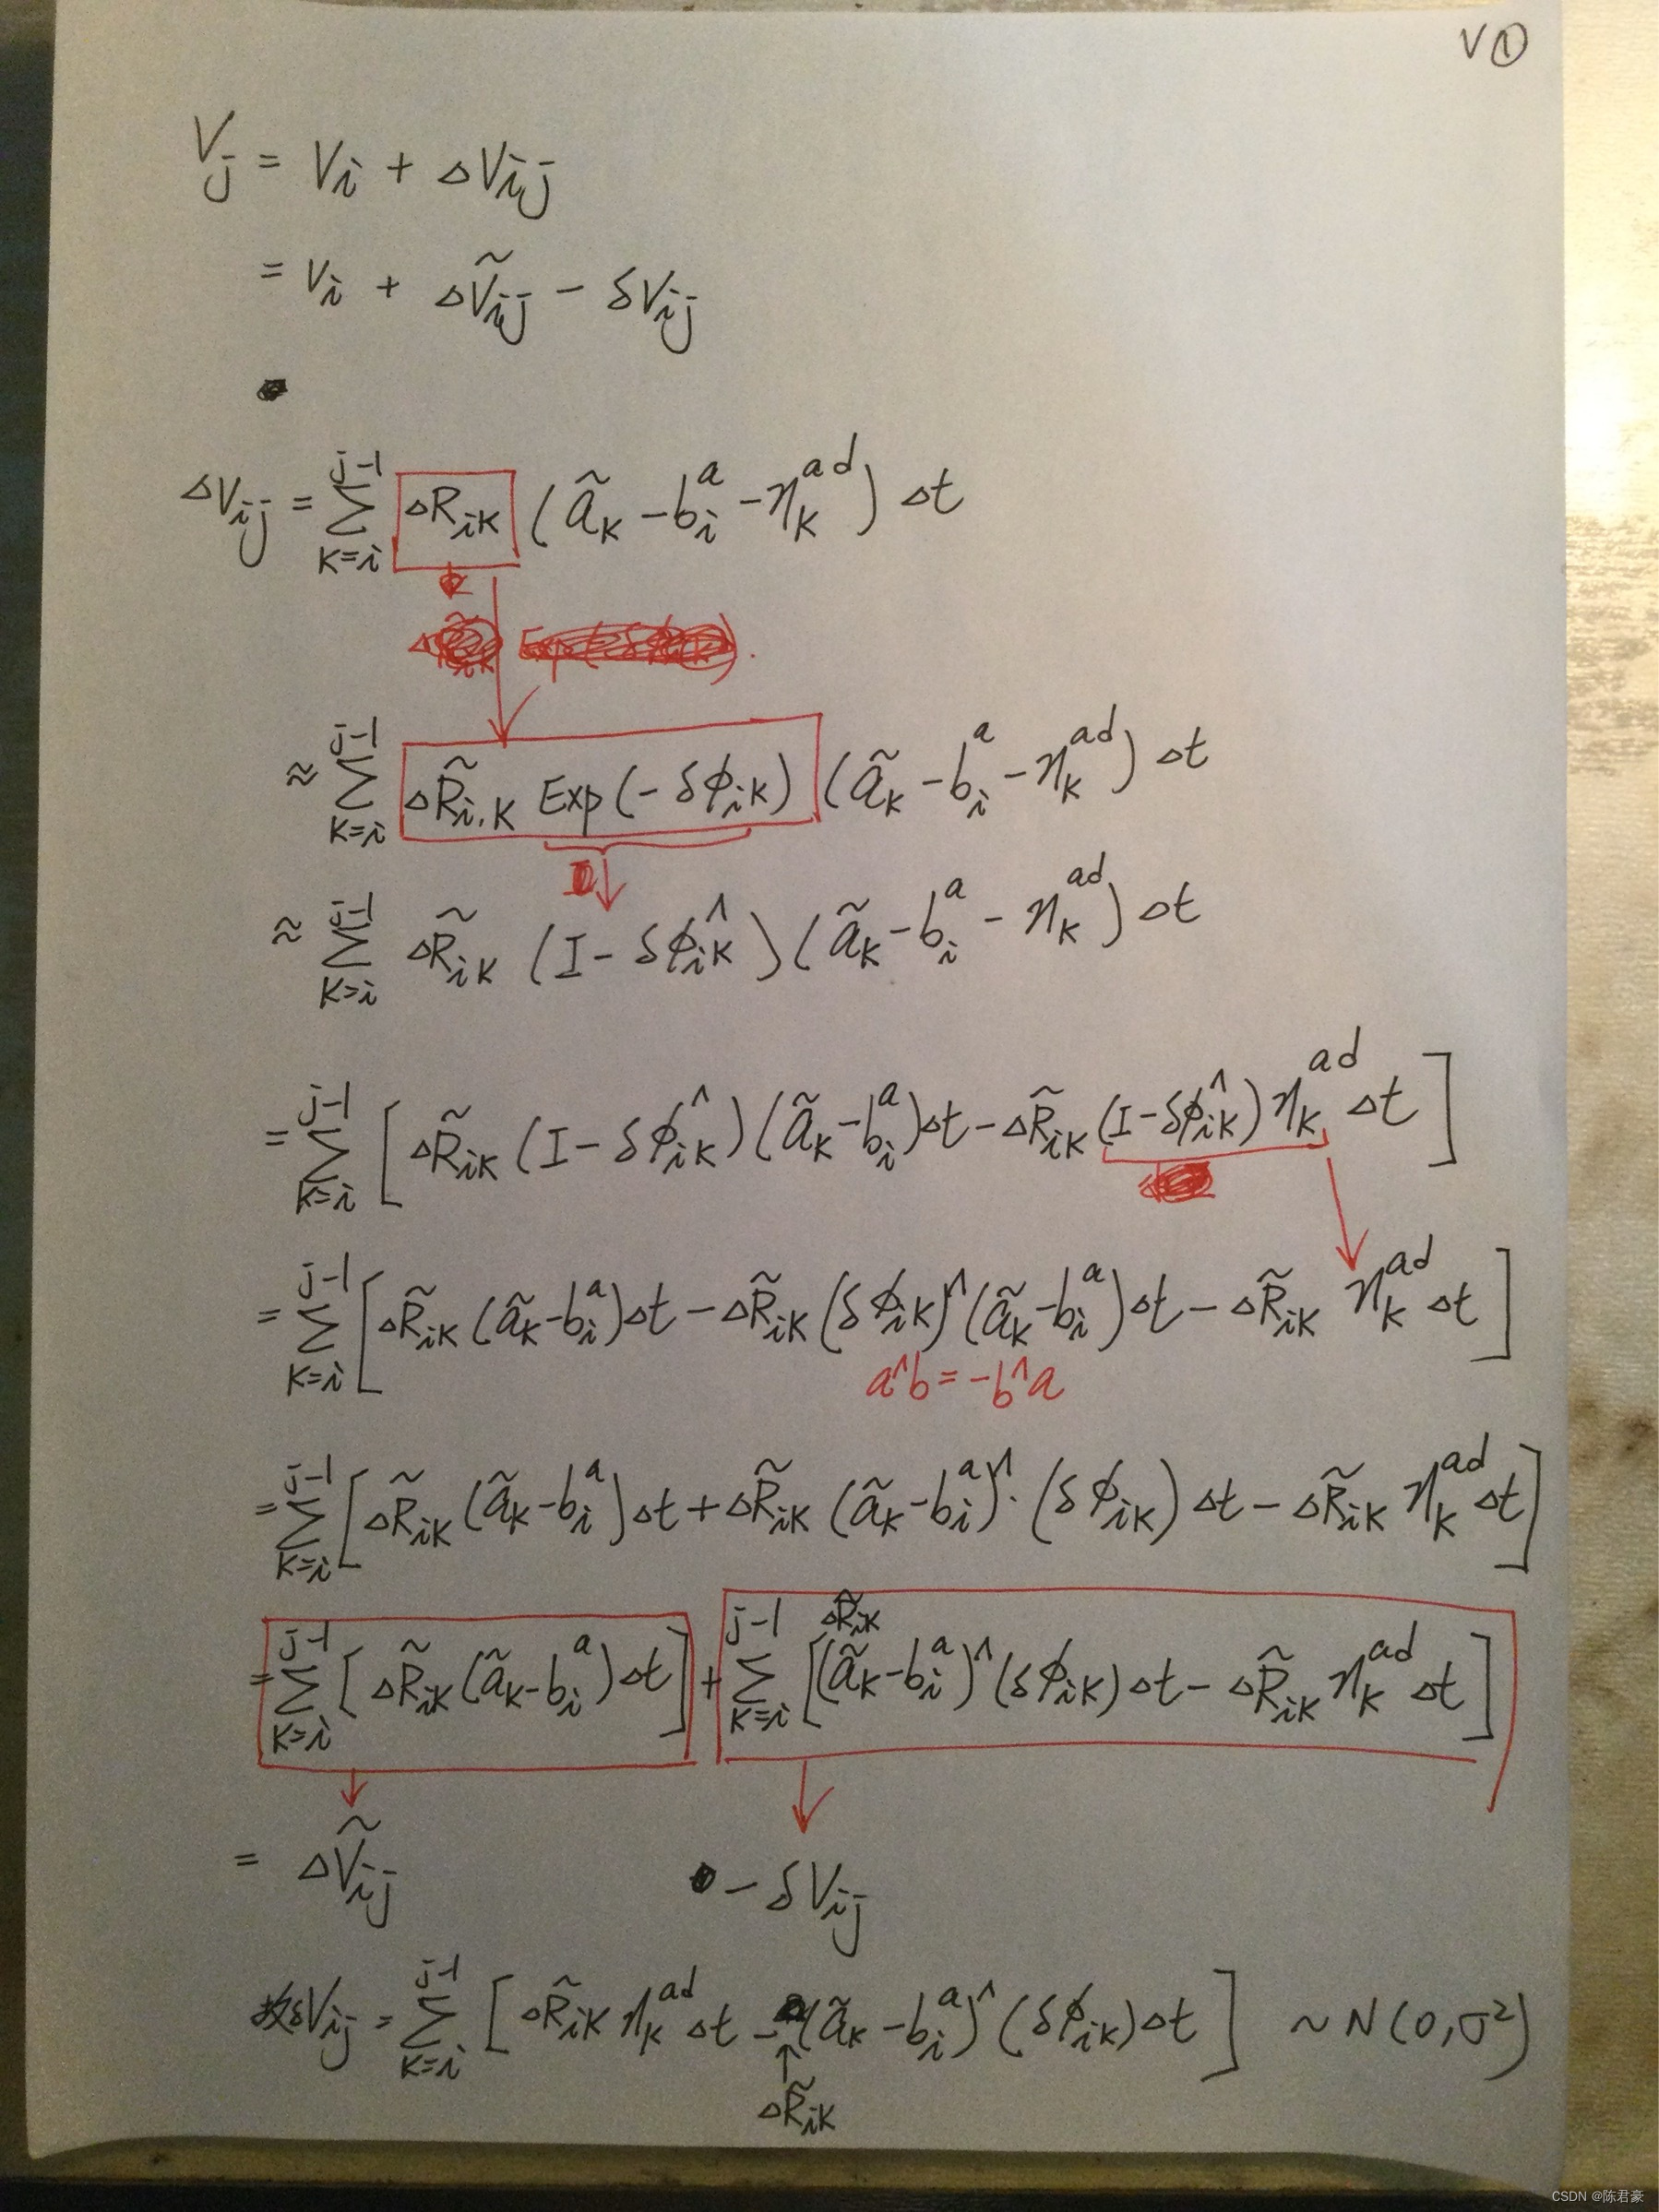 V①
V_j = V_i + ΔV_ij
= V_i + ΔṼ_ij − δV_ij
ΔV_ij = Σ_{k=i}^{j-1} ΔR_ik (ã_k − b_i^a − η_k^ad) Δt
≈ Σ_{k=i}^{j-1} ΔR̃_i.k Exp(−δϕ_ik) (ã_k − b_i^a − η_k^ad) Δt
≈ Σ_{k=i}^{j-1} ΔR̃_ik (I − δϕ_ik^∧) (ã_k − b_i^a − η_k^ad) Δt
= Σ_{k=i}^{j-1} [ ΔR̃_ik (I − δϕ_ik^∧) (ã_k − b_i^a) Δt − ΔR̃_ik (I − δϕ_ik^∧) η_k^ad Δt ]
= Σ_{k=i}^{j-1} [ ΔR̃_ik (ã_k − b_i^a) Δt − ΔR̃_ik (δϕ_ik)^∧ (ã_k − b_i^a) Δt − ΔR̃_ik η_k^ad Δt ]
a^∧b = −b^∧a
= Σ_{k=i}^{j-1} [ ΔR̃_ik (ã_k − b_i^a) Δt + ΔR̃_ik (ã_k − b_i^a)^∧ · (δϕ_ik) Δt − ΔR̃_ik η_k^ad Δt ]
ΔR̃_ik
= Σ_{k=i}^{j-1} [ ΔR̃_ik (ã_k − b_i^a) Δt ] + Σ_{k=i}^{j-1} [ (ã_k − b_i^a)^∧ (δϕ_ik) Δt − ΔR̃_ik η_k^ad Δt ]
= ΔṼ_ij − δV_ij
故δV_ij = Σ_{k=i}^{j-1} [ ΔR̃_ik η_k^ad Δt − (ã_k − b_i^a)^∧ (δϕ_ik) Δt ] ~ N(0, σ²)
ΔR̃_ik
CSDN @陈君豪